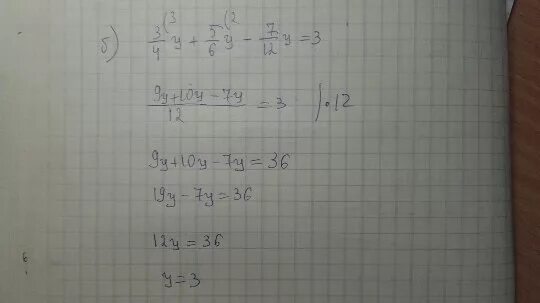 б) 3/4 (3 y + 5/6 (2 y - 7/12 y = 3
(9y+10y-7y)/12 = 3 | •12
9y+10y-7y=36
19y-7y=36
12y=36
y=3